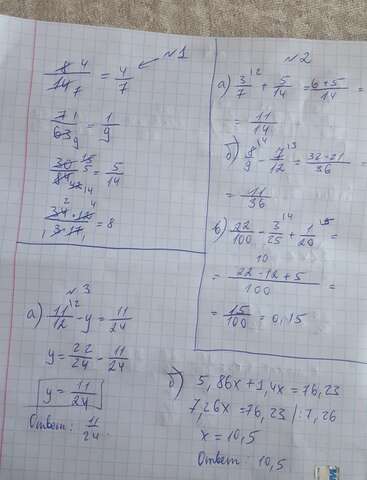 №1
8 4/14 7 = 4/7
7 1/63 9 = 1/9
30 15 5/84 42 14 = 5/14
34 2 · 12 4/1 3 · 17 1 = 8
№2
а) 3/7 |2 + 5/14 = 6+5/14 =
= 11/14
б) 8/9 |4 - 7/12 |3 = 32-21/36
= 11/36
в) 22/100 - 3/25 |4 + 1/20 |5 =
= 22-12+5/100 =
= 15/100 = 0,15
№3
а) 11/12 |2 - y = 11/24
y = 22/24 - 11/24
y = 11/24
Ответ: 11/24
б) 5,86x + 1,4x = 76,23
7,26x = 76,23 |:7,26
x = 10,5
Ответ: 10,5